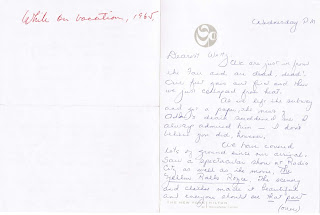 While on vacation, 1965
Wednesday P.M.
Dearest
We are just in from
the Fair and are dead, dead!
Our feet gave out first and then
we just collapsed from heat.
As we left the subway
and got a paper, the news
Adlai's death saddened me. I
always admired him — I don't
believe you did, however.
We have covered
lots of ground since our arrival.
Saw a spectacular show at Radio
City as well as the movie, The
Yellow Rolls Royce. The scenery
and clothes made it beautiful
and everyone should see that part
THE NEW YORK HILTON
(over)